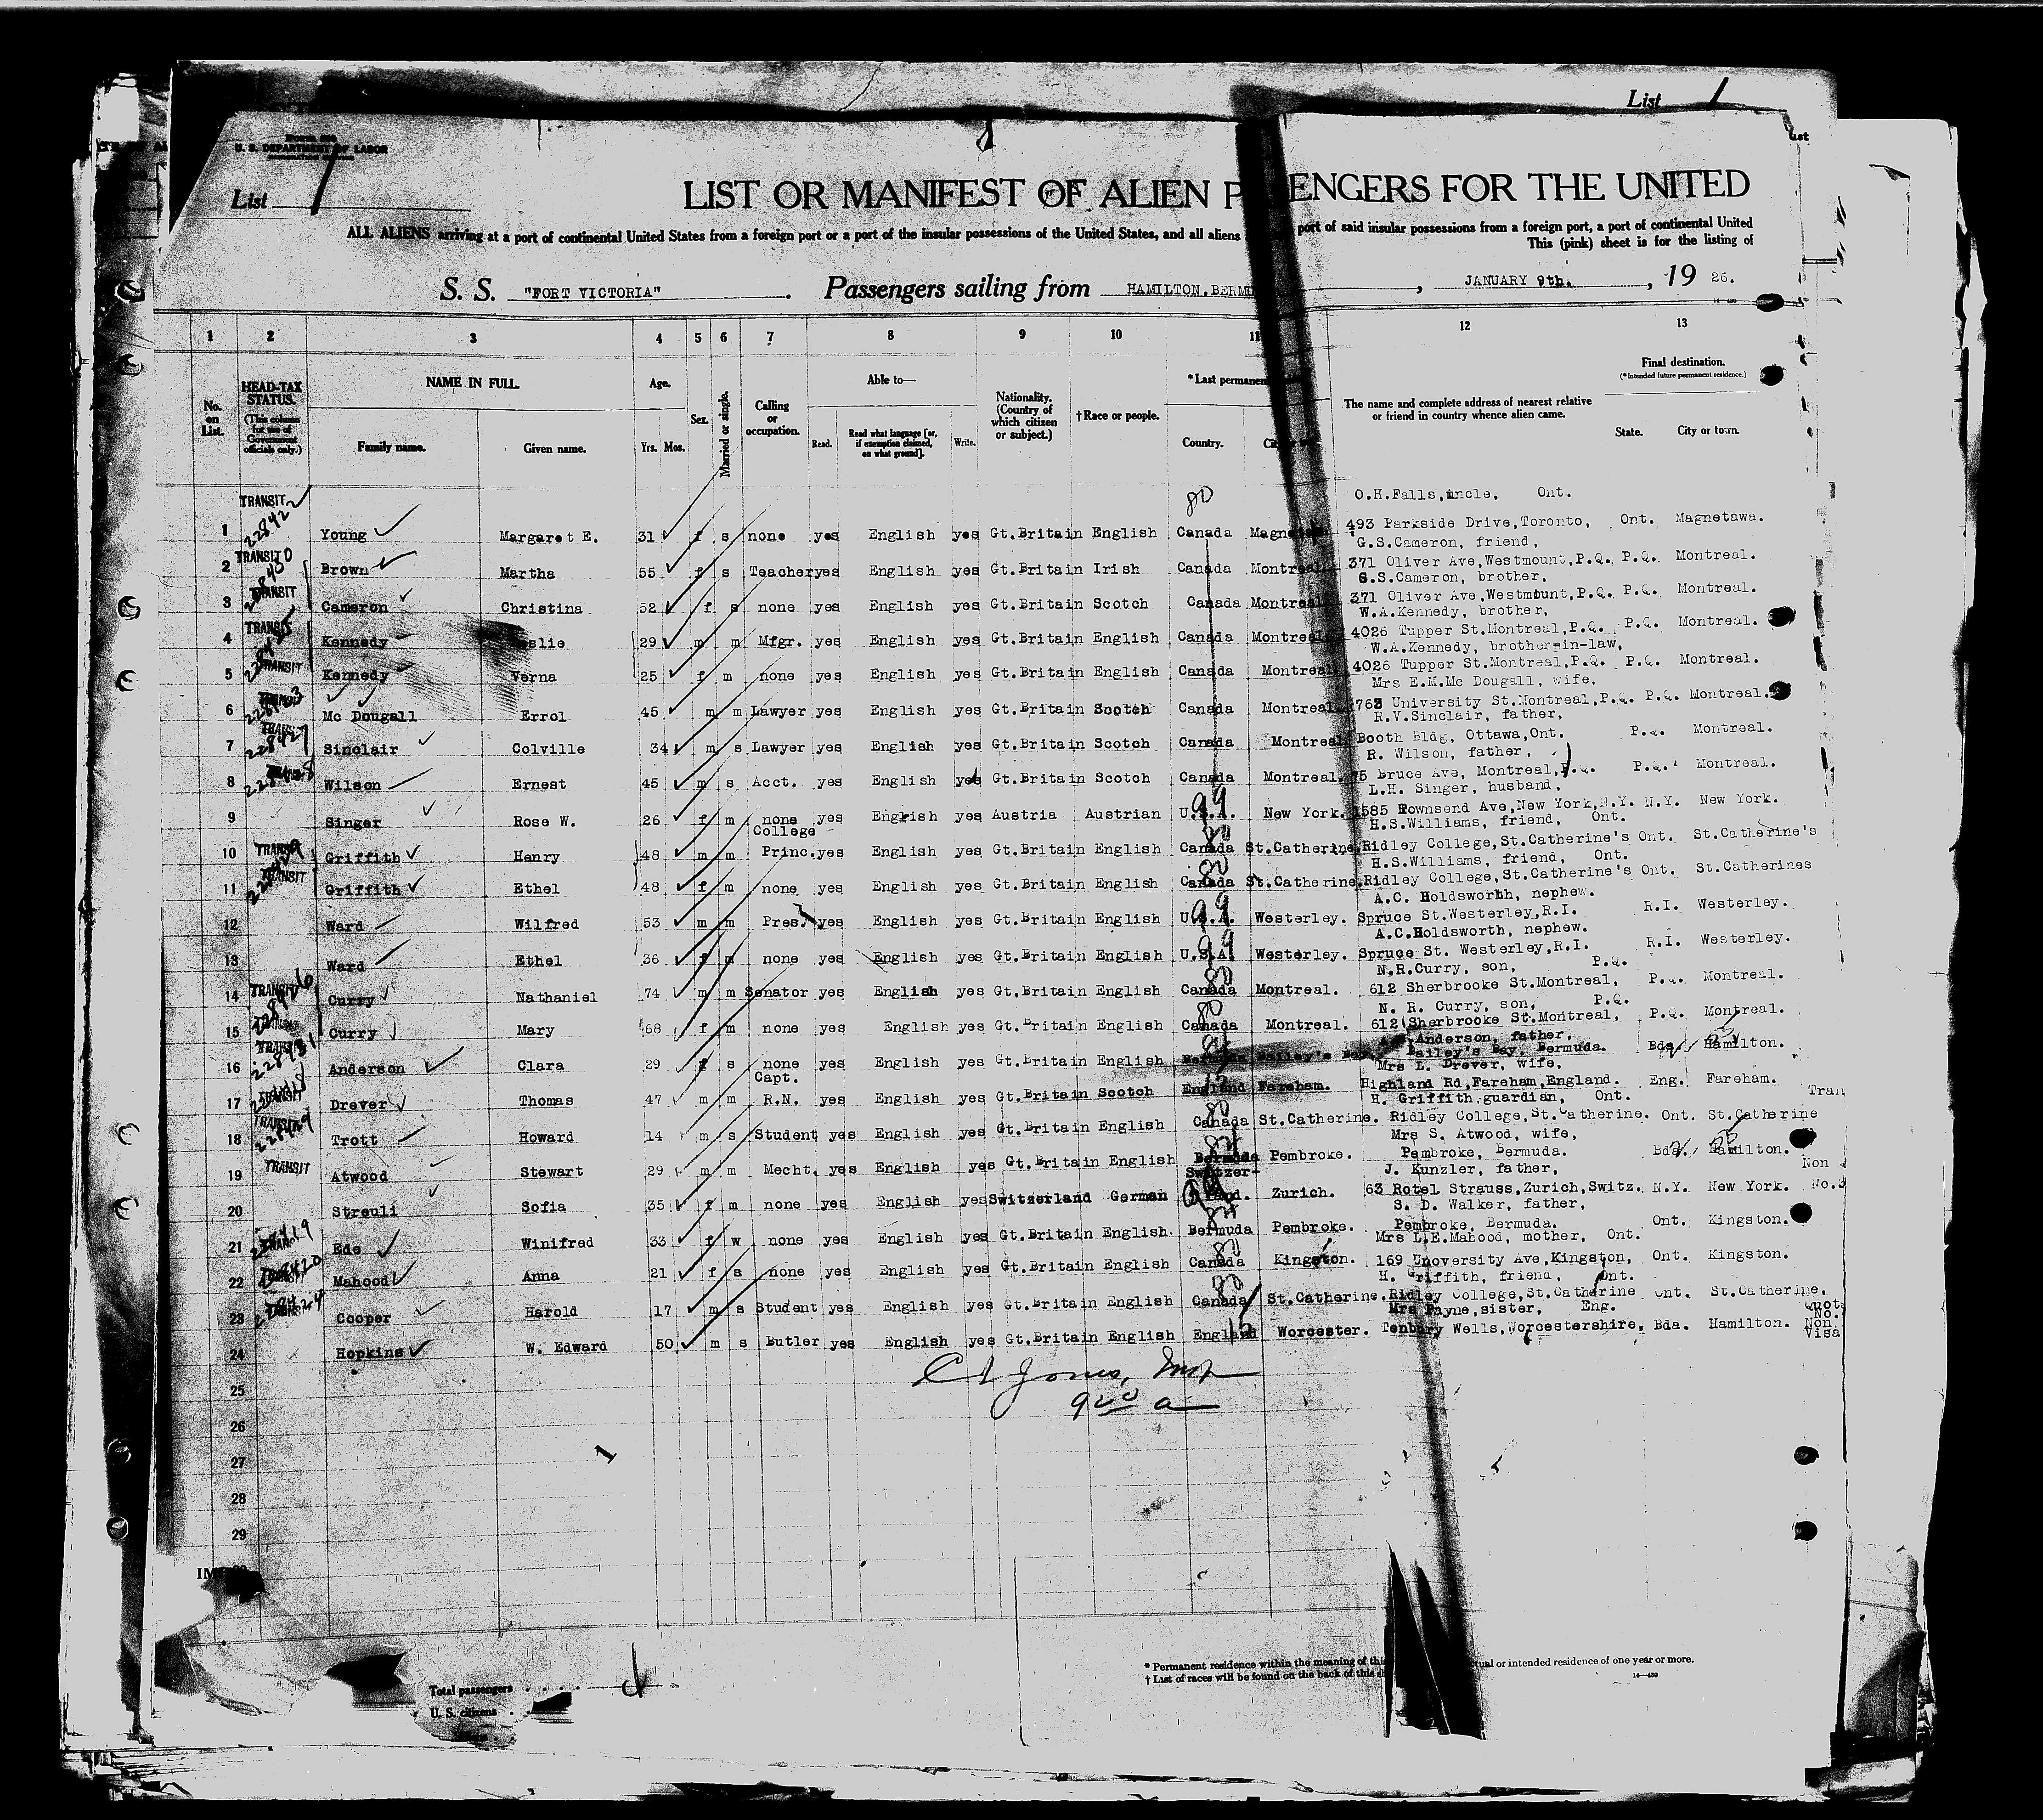 List 1
U. S. DEPARTMENT OF LABOR
List 1
LIST OR MANIFEST OF ALIEN P ENGERS FOR THE UNITED
ALL ALIENS arriving at a port of continental United States from a foreign port or a port of the insular possessions of the United States, and all aliens port of said insular possessions from a foreign port, a port of continental United
This (pink) sheet is for the listing of
S. S. "FORT VICTORIA" . Passengers sailing from HAMILTON, BERMU , JANUARY 9th. , 19 26.
1 2 3 4 5 6 7 8 9 10 11 12 13
No. on List.
HEAD-TAX STATUS. (This column for use of Government officials only.)
NAME IN FULL.
Family name. Given name.
Age. Yrs. Mos.
Sex.
Married or single.
Calling or occupation.
Able to—
Read. Read what language [or, if exemption claimed, on what ground]. Write.
Nationality. (Country of which citizen or subject.)
†Race or people.
*Last permanen
Country.
The name and complete address of nearest relative or friend in country whence alien came.
Final destination.
(*Intended future permanent residence.)
State. City or town.
TRANSIT O.H.Falls, uncle, Ont.
1 22842 Young Margaret E. 31 f s none yes English yes Gt.Britain English Canada 493 Parkside Drive,Toronto, Ont. Magnetawa.
G.S.Cameron, friend,
2 TRANSIT Brown Martha 55 f s Teacher yes English yes Gt.Britain Irish Canada Montreal 371 Oliver Ave,Westmount,P.Q. P.Q. Montreal.
G.S.Cameron, brother,
3 TRANSIT Cameron Christina 52 f s none yes English yes Gt.Britain Scotch Canada Montreal 371 Oliver Ave,Westmount,P.Q. P.Q. Montreal.
W.A.Kennedy, brother,
4 TRANSIT Kennedy 29 m m Mfgr. yes English yes Gt.Britain English Canada Montreal 4026 Tupper St.Montreal,P.Q. P.Q. Montreal.
W.A.Kennedy, brother-in-law,
5 TRANSIT Kennedy Verna 25 f m none yes English yes Gt.Britain English Canada Montreal 4026 Tupper St.Montreal,P.Q. P.Q. Montreal.
Mrs E.M.Mc Dougall, wife,
6 Mc Dougall Errol 45 m m Lawyer yes English yes Gt.Britain Scotch Canada Montreal University St.Montreal,P.Q. P.Q. Montreal.
R.V.Sinclair, father,
7 Sinclair Colville 34 m s Lawyer yes English yes Gt.Britain Scotch Canada Montreal Booth Bldg, Ottawa,Ont. P.Q. Montreal.
R. Wilson, father,
8 Wilson Ernest 45 m s Acct. yes English yes Gt.Britain Scotch Canada Montreal. 75 Bruce Ave, Montreal,P.Q. P.Q. Montreal.
L.H. Singer, husband,
9 Singer Rose W. 26 f m none yes English yes Austria Austrian U.S.A. New York. 1585 Townsend Ave,New York,N.Y. N.Y. New York.
College H.S.Williams, friend, Ont.
10 TRANSIT Griffith Henry 48 m m Princ. yes English yes Gt.Britain English Canada St.Catherine, Ridley College,St.Catherine's Ont. St.Catherine's
H.S.Williams, friend, Ont.
11 TRANSIT Griffith Ethel 48 f m none yes English yes Gt.Britain English Canada St.Catherine, Ridley College,St.Catherine's Ont. St.Catherines
A.C. Holdsworth, nephew.
12 Ward Wilfred 53 m m Pres. yes English yes Gt.Britain English U.S.A. Westerley. Spruce St.Westerley,R.I. R.I. Westerley.
A.C.Holdsworth, nephew.
13 Ward Ethel 36 f m none yes English yes Gt.Britain English U.S.A. Westerley. Spruce St. Westerley,R.I. R.I. Westerley.
N.R.Curry, son, P.Q.
14 TRANSIT Curry Nathaniel 74 m m Senator yes English yes Gt.Britain English Canada Montreal. 612 Sherbrooke St.Montreal, P.Q. Montreal.
N. R. Curry, son, P.Q.
15 Curry Mary 68 f m none yes English yes Gt.Britain English Canada Montreal. 612 Sherbrooke St.Montreal, P.Q. Montreal.
Anderson, father,
16 Anderson Clara 29 f s none yes English yes Gt.Britain English Bermuda Bailey's Bay. Bailey's Bay, Bermuda. Bda. Hamilton.
Capt. Mrs L. Drever, wife,
17 TRANSIT Drever Thomas 47 m m R.N. yes English yes Gt.Britain Scotch England Fareham. Highland Rd,Fareham,England. Eng. Fareham.
H. Griffith,guardian, Ont. Tran
18 TRANSIT Trott Howard 14 m s Student yes English yes Gt.Britain English Canada St.Catherine. Ridley College,St.Catherine. Ont. St.Catherine
Mrs S. Atwood, wife,
19 TRANSIT Atwood Stewart 29 m m Mecht. yes English yes Gt.Britain English Bermuda Pembroke. Pembroke, Bermuda. Bda. Hamilton.
Switzer- J. Kunzler, father, Non
20 Streuli Sofia 35 f m none yes English yes Switzerland German land. Zurich. 63 Rotel Strauss,Zurich,Switz. N.Y. New York.
S. D. Walker, father,
21 Ede Winifred 33 f w none yes English yes Gt.Britain English Bermuda Pembroke. Pembroke, Bermuda. Ont. Kingston.
Mrs L.E.Mahood, mother, Ont.
22 Mahood Anna 21 f s none yes English yes Gt.Britain English Canada Kingston. 169 Unoversity Ave,Kingston, Ont. Kingston.
H. Griffith, friend, Ont.
23 Cooper Harold 17 m s Student yes English yes Gt.Britain English Canada St.Catherine, Ridley College,St.Catherine Ont. St.Catherine.
Mrs Payne,sister, Eng. Quot
24 Hopkins W. Edward 50 m s Butler yes English yes Gt.Britain English England Worcester. Tenbury Wells,Worcestershire, Bda. Hamilton. Non. Visa
25
26
27
28
29
* Permanent residence within the meaning of this tual or intended residence of one year or more.
† List of races will be found on the back of this sh
14—430
Total passengers
U. S. citizens